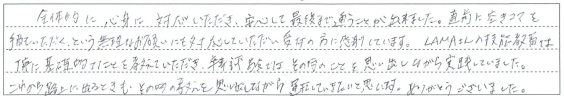 全体的に心身に対応いただき、安心して最後まで通うことが出来ました。直前に空きコマを
頂いていただく、という無理なお願いにも対応していただいた受付の方に感謝しています。LAMAILの技能教習では
特に基礎的なことを教えていただき、卒業試験ではその時のことを思い出しながら実践していました。
これから路上に出るときも、その時の教えを思い出しながら運転していきたいと思います。ありがとうございました。